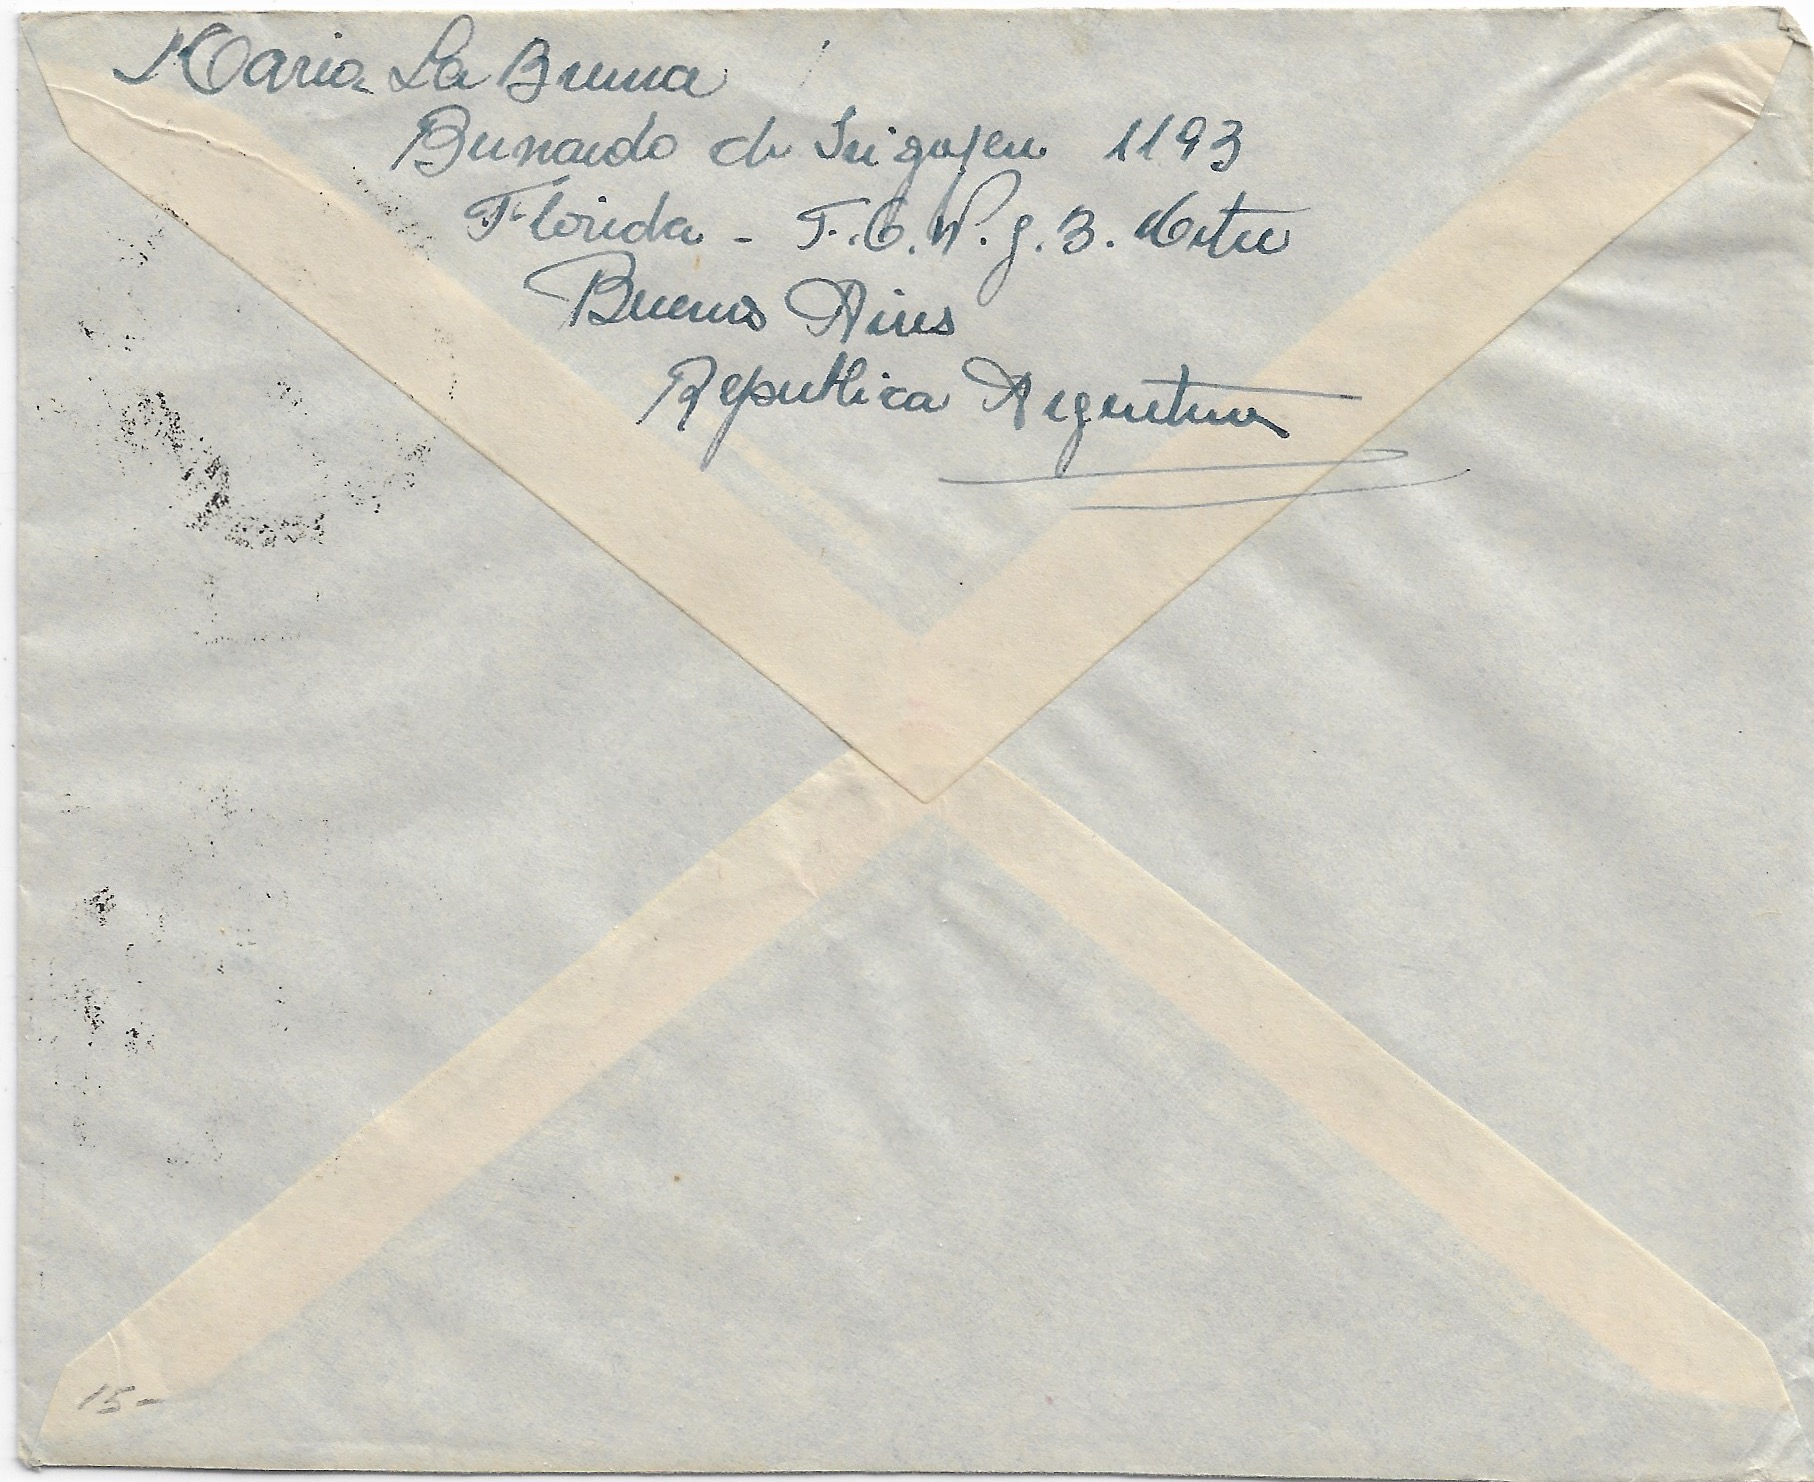 Maria La Bruna
Bernardo de Irigoyen 1193
Florida - F.C.N.G.B. Mitre
Buenos Aires
Republica Argentina
15-